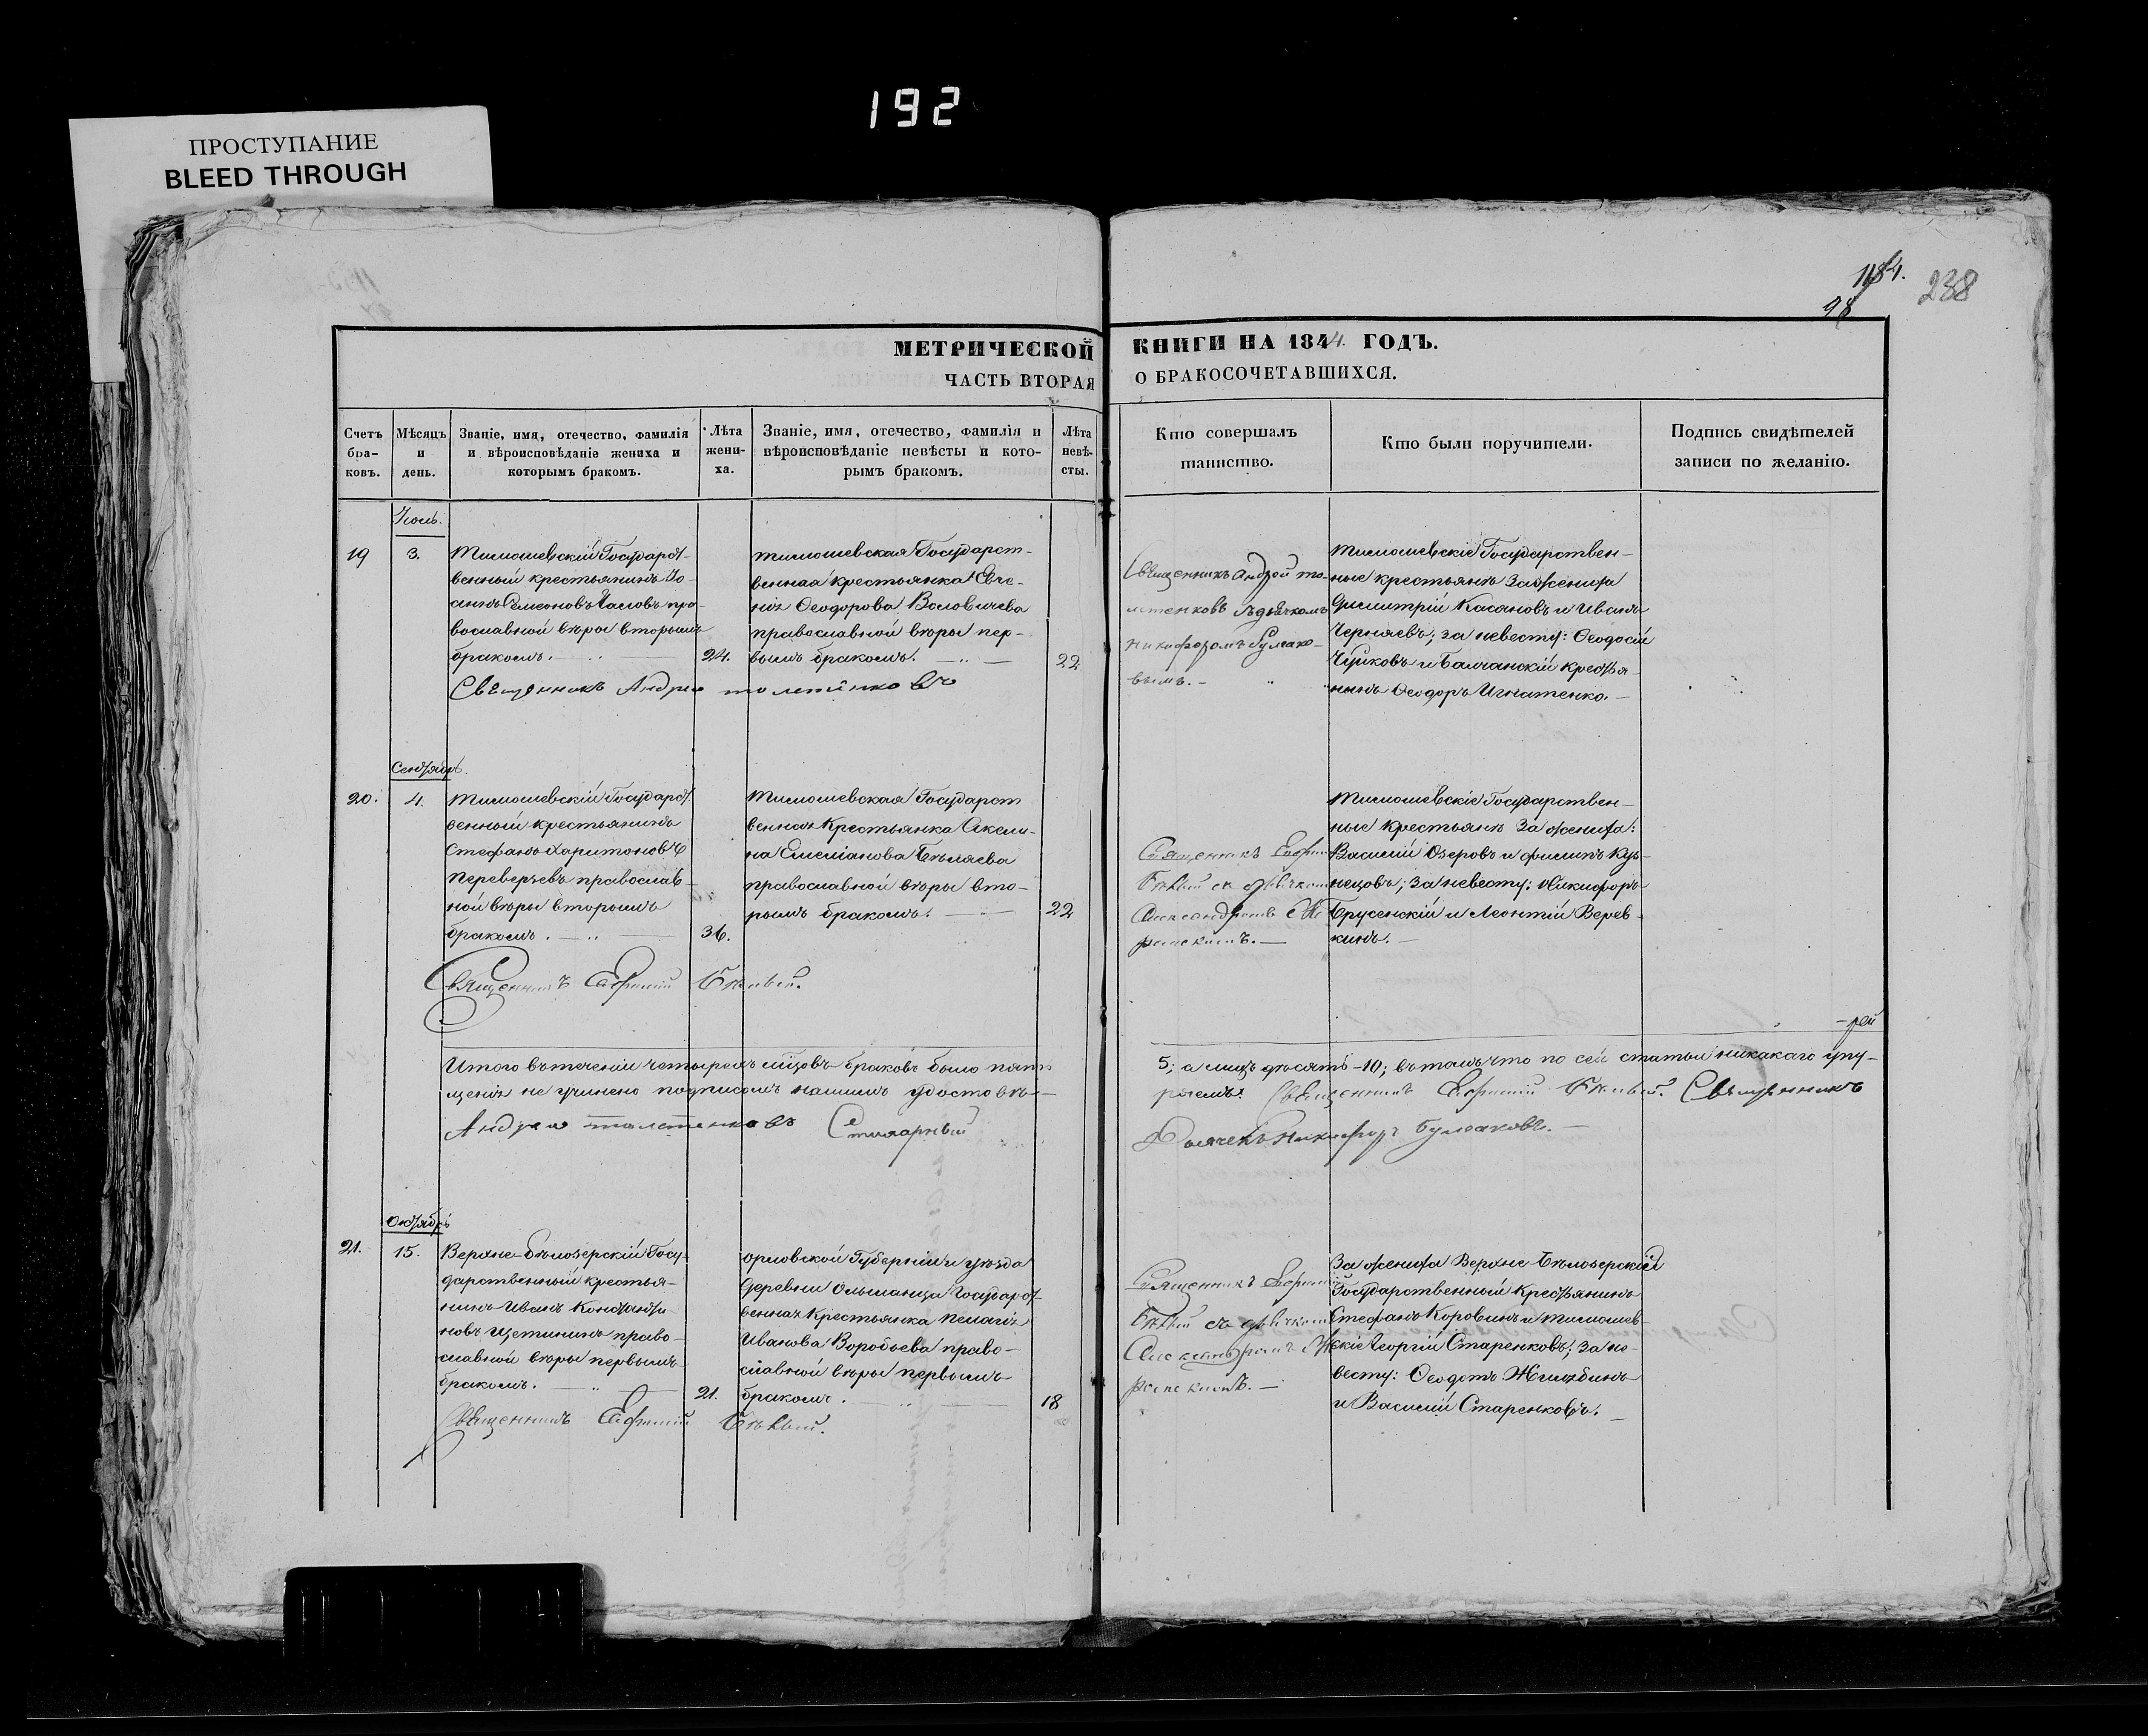 192
ПРОСТУПАНИЕ
BLEED THROUGH
1184.
98
238
МЕТРИЧЕСКОЙ КНИГИ НА 1844. ГОДЪ.
ЧАСТЬ ВТОРАЯ О БРАКОСОЧЕТАВШИХСЯ.
Счетъ бра-ковъ.
Мѣсяцъ и день.
Званіе, имя, отечество, фамилія
и вѣроисповѣданіе жениха и
которымъ бракомъ.
Лѣта жени-ха.
Званіе, имя, отечество, фамилія и
вѣроисповѣданіе невѣсты и кото-
рымъ бракомъ.
Лѣта невѣ-сты.
Кто совершалъ
таинство.
Кто были поручители.
Подпись свидѣтелей
записи по желанію.
19
3.
Тимошевскій Государст-
венный крестьянинъ Іо-
аннъ Симеоновъ Часловъ пра-
вославной вѣры вторымъ
бракомъ.
24.
Тимошевская Государст-
венная крестьянка Евге-
нія Ѳеодорова Воловичева
православной вѣры пер-
вымъ бракомъ.
22
Священникъ Андрей То-
летенковъ съ дьячкомъ
Никифоромъ Булгако-
вымъ.
Тимошевскіе Государствен-
ные крестьяне За жениха
Димитрій Касановъ и Иванъ
Черняевъ; за невесту: Ѳеодосій
Чуйковъ и Балчанскій крестья-
нинъ Ѳеодоръ Игнатенко.
Священникъ Андрей Толетенковъ
Сентябрь.
20.
4.
Тимошевскій Государст
венный крестьянинъ
Стефанъ Харитоновъ
Переверзевъ православ-
ной вѣры вторымъ
бракомъ.
36.
Тимошевская Государст
венная Крестьянка Акели-
на Емеліанова Бѣляева
православной вѣры вто-
рымъ бракомъ.
22
Священникъ Ефимій
Бѣлый съ дьячкомъ
Тимошевскіе Государствен-
ные крестьяне За жениха:
Василій Озеровъ и Филипъ Куз-
нецовъ; За невесту: Никифоръ
Брусенскій и Леонтій Верев-
кинъ.
Священникъ Ефимій Бѣлый.
Итого въ теченіи четырехъ мѣсцовъ браковъ было пять 5; а лицъ десять-10; въ томъ что по сей статьи никакаго упу-
щенія не учинено подписомъ нашимъ удостовѣ-ряемъ: Священникъ Ефимій Бѣлый. Священникъ
Андрей Толетенковъ Стихарный Дьячекъ Никифоръ Булгаковъ.
Октябрь
21.
15.
Верхне-бѣлозерскій Госу-
дарственный крестья-
нинъ Иванъ Константи-
новъ Щетининъ право-
славной вѣры первымъ
бракомъ.
21.
Орловской Губерніи и уѣзда
деревни Ольшанца Государст-
венная Крестьянка Пелагія
Иванова Воробьева право-
славной вѣры первымъ
бракомъ.
18
Священникъ Ефимій
Бѣлый съ дьячкомъ
За жениха Верхне-Бѣлозерскій
Государственный Крестьянинъ
Стефанъ Коровинъ и Тимошев-
скіе Георгій Старенковъ; За не-
весту: Ѳеодотъ Жилябинъ
и Василій Старенковъ.
Священникъ Ефимій Бѣлый.